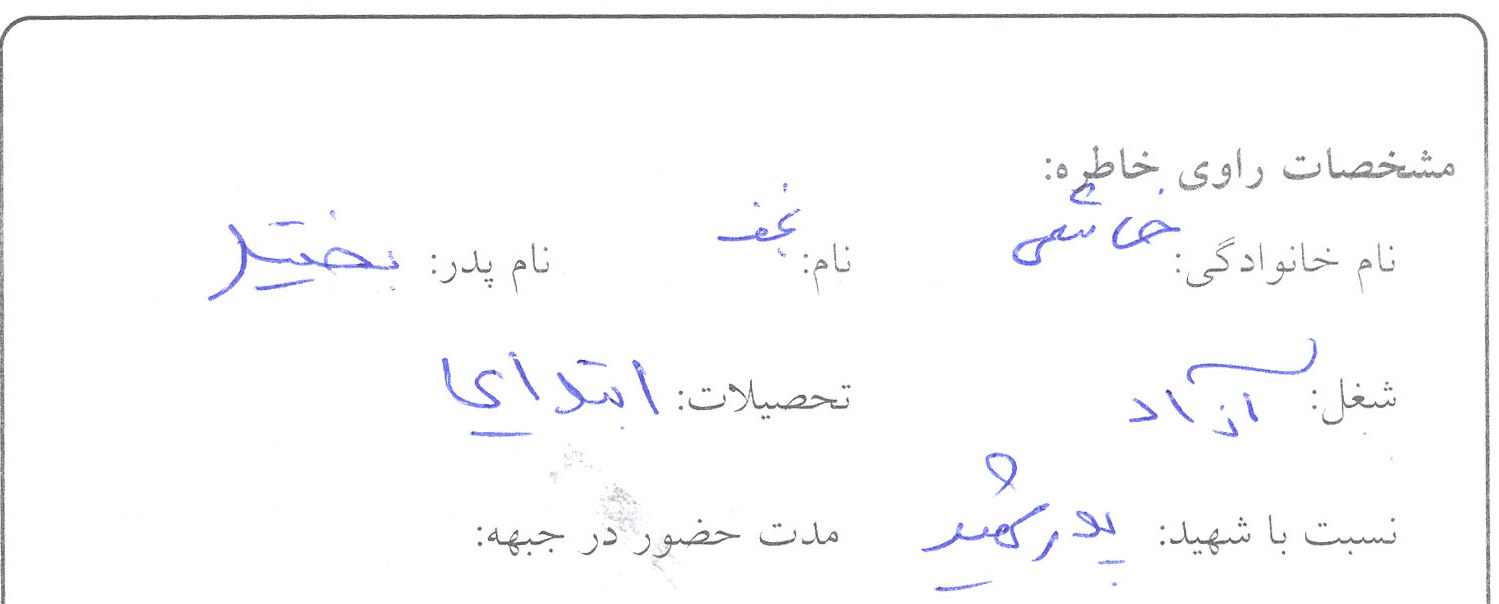 مشخصات راوی خاطره:
نام خانوادگی: خاشعی نام: نجف نام پدر: بختیار
شغل: آزاد تحصیلات: ابتدای
نسبت با شهید: پدر شهید مدت حضور در جبهه: